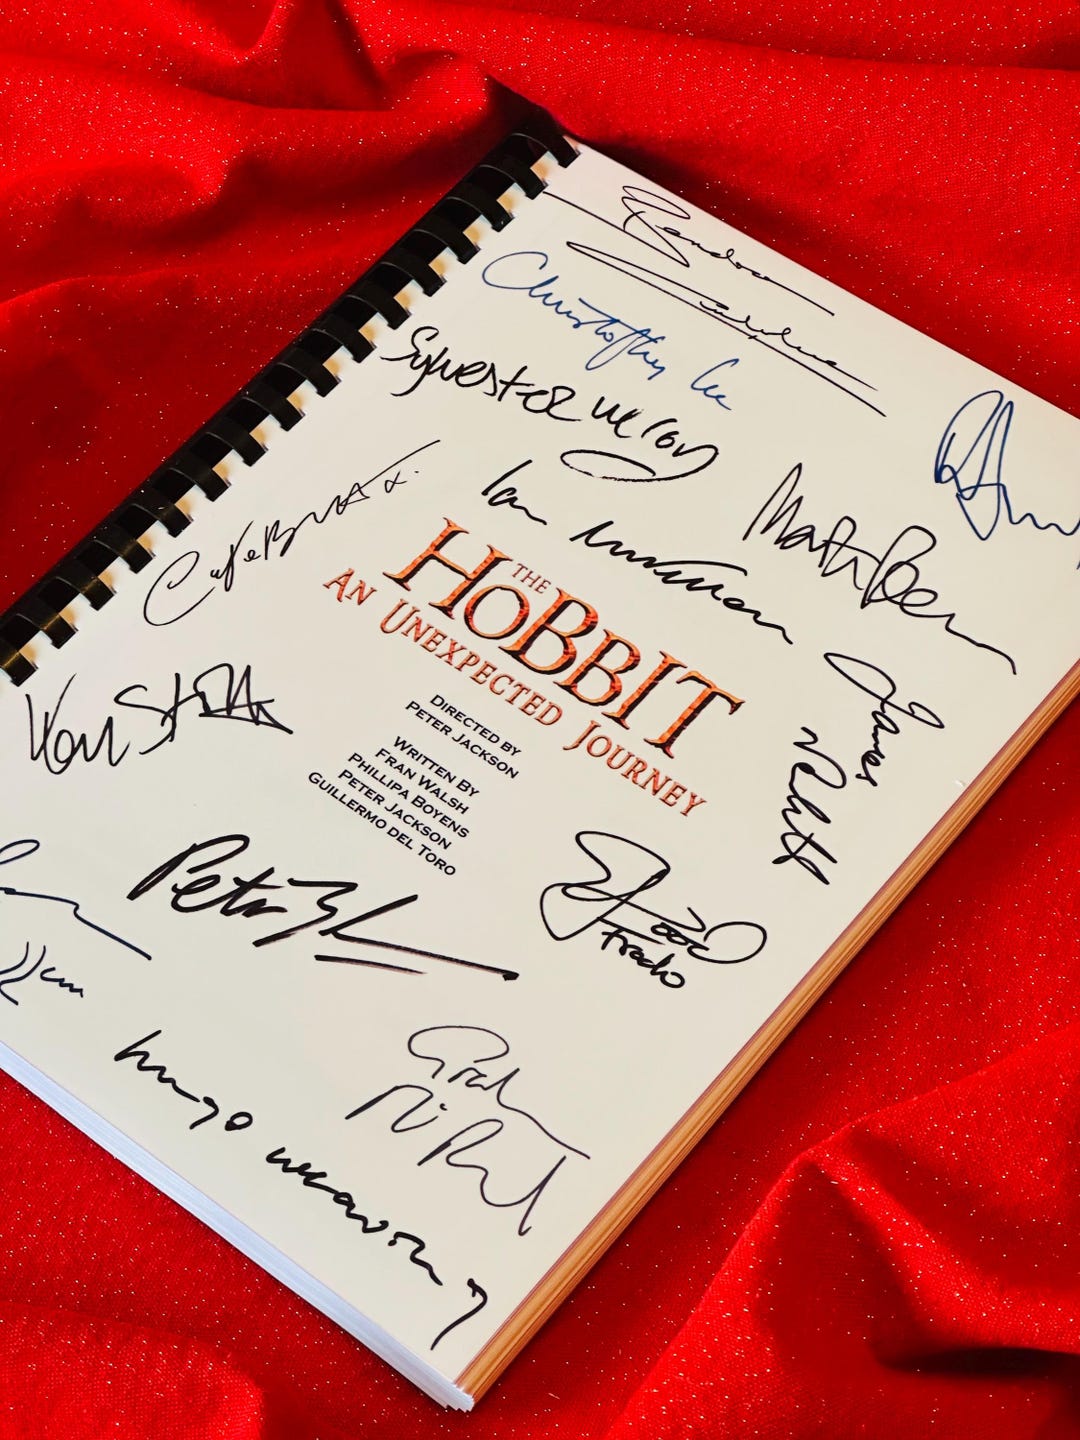 Christopher Lee
Sylvester McCoy
Ian McKellen
Martin Freeman
Cate Blanchett x.
THE
HOBBIT
AN UNEXPECTED JOURNEY
James
Nesbitt
Ken Stott
DIRECTED BY
PETER JACKSON
WRITTEN BY
FRAN WALSH
PHILLIPA BOYENS
PETER JACKSON
GUILLERMO DEL TORO
Peter Jackson
Frodo
hugo weaving